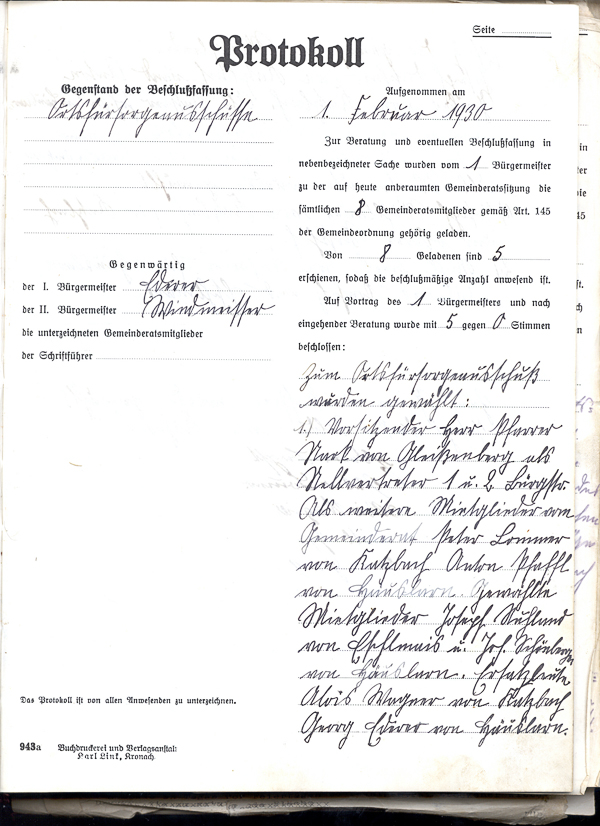 Seite
Protokoll
Gegenstand der Beschlußfassung:
Ortsfürsorgeausschüsse
Gegenwärtig
der I. Bürgermeister Ederer
der II. Bürgermeister Windmeisser
die unterzeichneten Gemeinderatsmitglieder
der Schriftführer
Das Protokoll ist von allen Anwesenden zu unterzeichnen.
943a Buchdruckerei und Verlagsanstalt
Karl Link, Kronach
Aufgenommen am
1. Februar 1930
Zur Beratung und eventuellen Beschlußfassung in
nebenbezeichneter Sache wurden vom 1 Bürgermeister
zu der auf heute anberaumten Gemeinderatssitzung die
sämtlichen 8 Gemeinderatsmitglieder gemäß Art. 145
der Gemeindeordnung gehörig geladen.
Von 8 Geladenen sind 5
erschienen, sodaß die beschlußmäßige Anzahl anwesend ist.
Auf Vortrag des 1 Bürgermeisters und nach
eingehender Beratung wurde mit 5 gegen 0 Stimmen
beschlossen:
Zum Ortsfürsorgeausschuß
wurden gewählt:
1.) Vorsitzender Herr Pfarrer
von Gleißenberg als
Stellvertreter 1 u. 2. Bürgstr.
Als weitere Mietglieder vom
Gemeinderat Peter Lommer
von Katzbach Anton Pfaffl
von Häuslarn. Gewählte
Mietglieder Joseph Ruhland
von Eschlmais u. Joh. Schönberger
von Häuslarn. Ersatzleute
Alois Wagner von Katzbach
Georg Ederer von Häuslarn.